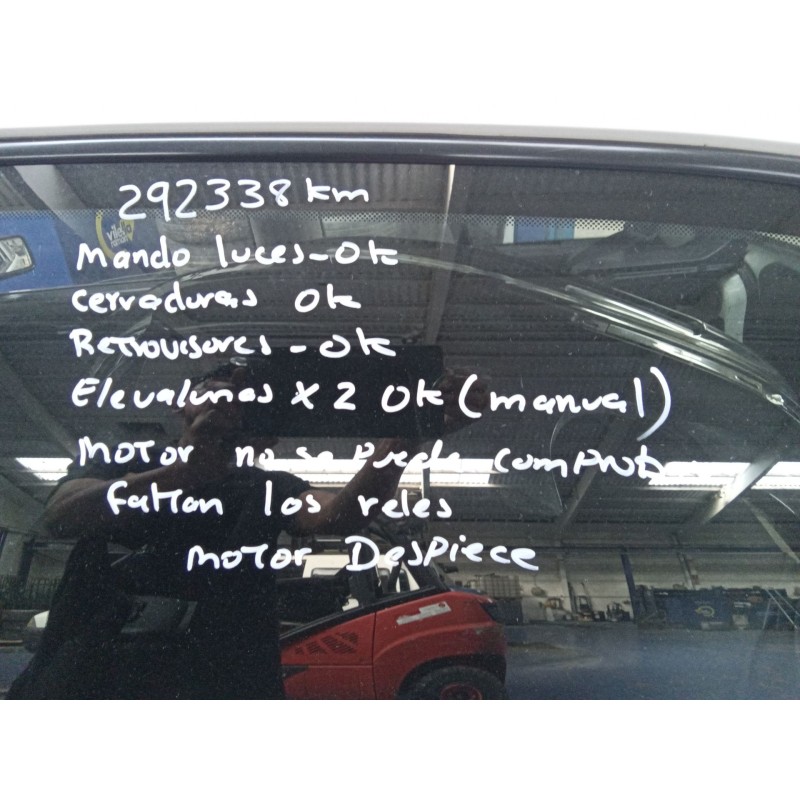 292338 km
Mando luces - Ok
Cerraduras Ok
Retrovisores - Ok
Elevalunas x 2 Ok (manual)
Motor no se puede comprob
faltan los reles
Motor Despiece